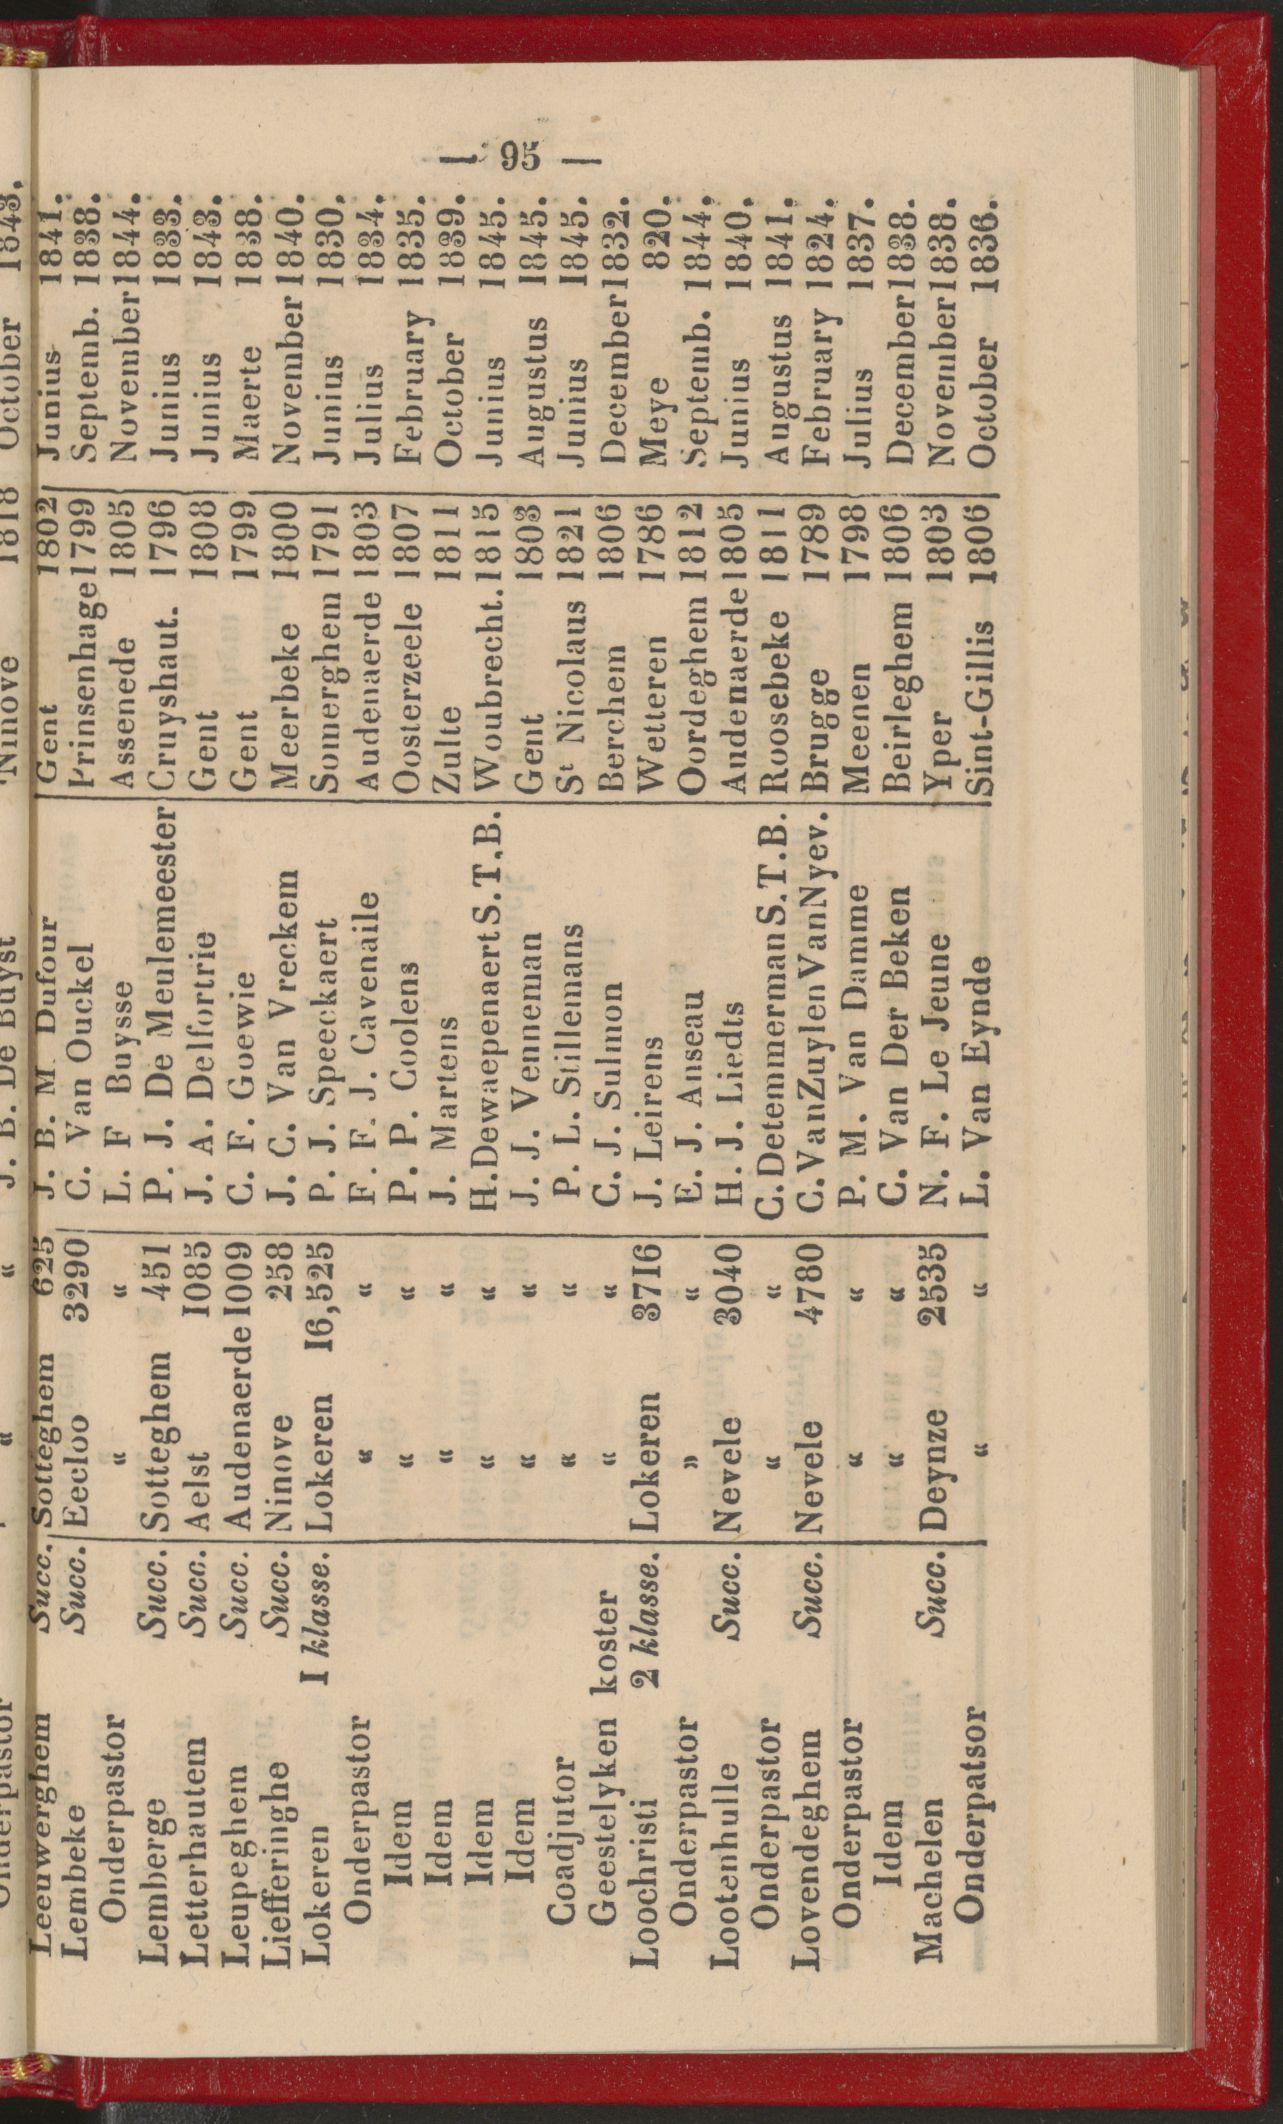 — 95 —
Onderpastor " " J. B. De Buyst Ninove 1818 October 1843.
Leeuwerghem Succ. Sotteghem 625 J. B. M Dufour Gent 1802 Junius 1841.
Lembeke Succ. Eecloo 3290 C. Van Ouckel Prinsenhage 1799 Septemb. 1838.
Onderpastor " " L. F Buysse Assenede 1805 November 1844.
Lemberge Succ. Sotteghem 451 P. J. De Meulemeester Cruyshaut. 1796 Junius 1833.
Letterhautem Succ. Aelst 1085 J. A. Delfortrie Gent 1808 Junius 1843.
Leupeghem Succ. Audenaerde 1009 C. F. Goewie Gent 1799 Maerte 1838.
Liefferinghe Succ. Ninove 258 J. C. Van Vreckem Meerbeke 1800 November 1840.
Lokeren 1 klasse. Lokeren 16,525 P. J. Speeckaert Somerghem 1791 Junius 1830.
Onderpastor " " F. F. J. Cavenaile Audenaerde 1803 Julius 1834.
Idem " " P. P. Coolens Oosterzeele 1807 February 1835.
Idem " " J. Martens Zulte 1811 October 1839.
Idem " " H. Dewaepenaert S. T. B. Woubrecht. 1815 Junius 1845.
Idem " " J. J. Venneman Gent 1803 Augustus 1845.
Coadjutor " " P. L. Stillemans St Nicolaus 1821 Junius 1845.
Geestelyken koster " " C. J. Sulmon Berchem 1806 December 1832.
Loochristi 2 klasse. Lokeren 3716 J. Leirens Wetteren 1786 Meye 820.
Onderpastor " " E. J. Anseau Oordeghem 1812 Septemb. 1844.
Lootenhulle Succ. Nevele 3040 H. J. Liedts Audenaerde 1805 Junius 1840.
Onderpastor " " C. Detemmerman S. T. B. Roosebeke 1811 Augustus 1841.
Lovendeghem Succ. Nevele 4780 C. Van Zuylen Van Nyev. Brugge 1789 February 1824.
Onderpastor " " P. M. Van Damme Meenen 1798 Julius 1837.
Idem " " C. Van Der Beken Beirleghem 1806 December 1838.
Machelen Succ. Deynze 2535 N. F. Le Jeune Yper 1803 November 1838.
Onderpatsor " " L. Van Eynde Sint-Gillis 1806 October 1836.